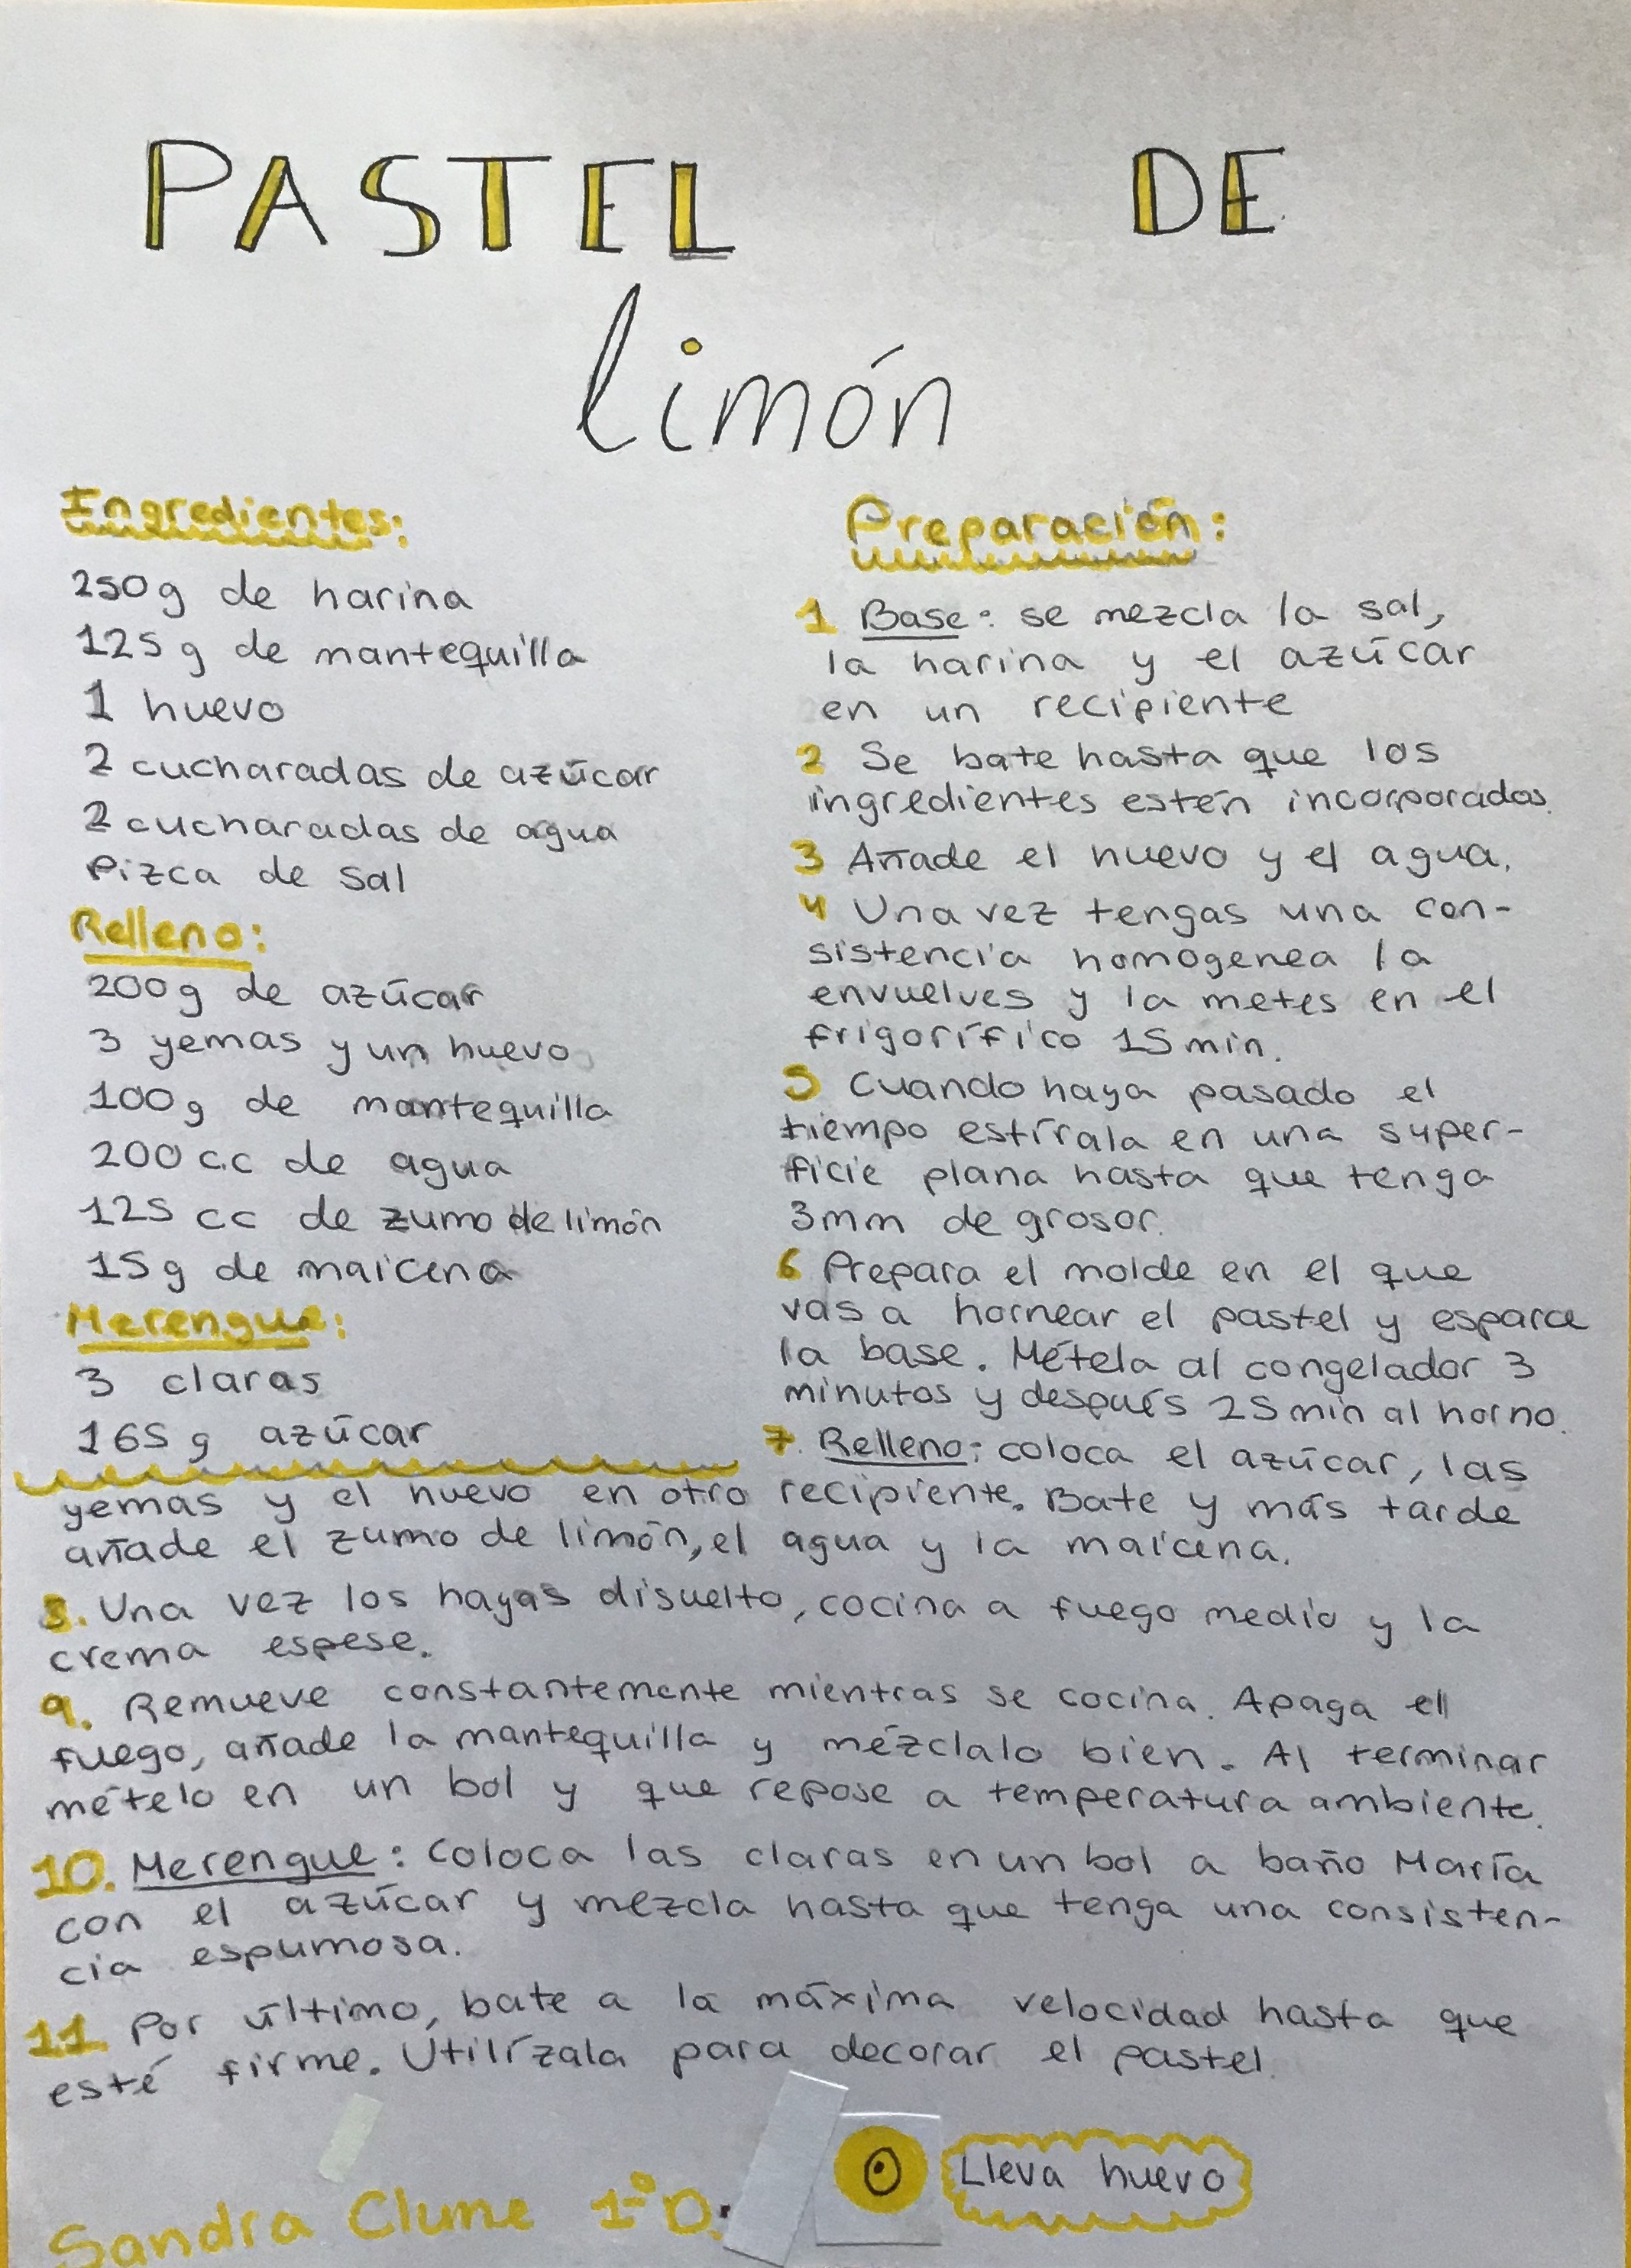 PASTEL DE
limón
Ingredientes:
250g de harina
125 g de mantequilla
1 huevo
2 cucharadas de azúcar
2 cucharadas de agua
Pizca de sal
Relleno:
200g de azúcar
3 yemas y un huevo
100g de mantequilla
200 c.c de agua
125 cc de zumo de limón
15g de maicena
Merengue:
3 claras
165 g azúcar
Preparación:
1 Base: se mezcla la sal,
la harina y el azúcar
en un recipiente
2 Se bate hasta que los
ingredientes estén incorporados.
3 Añade el huevo y el agua.
4 Una vez tengas una con-
sistencia homogenea la
envuelves y la metes en el
frigorífico 15 min.
5 Cuando haya pasado el
tiempo estírala en una super-
ficie plana hasta que tenga
3mm de grosor.
6 Prepara el molde en el que
vas a hornear el pastel y esparce
la base. Métela al congelador 3
minutos y después 25 min al horno.
7. Relleno: coloca el azúcar, las
yemas y el huevo en otro recipiente. Bate y más tarde
añade el zumo de limón, el agua y la maicena.
8. Una vez los hayas disuelto, cocina a fuego medio y la
crema espese.
9. Remueve constantemente mientras se cocina. Apaga el
fuego, añade la mantequilla y mézclalo bien. Al terminar
mételo en un bol y que repose a temperatura ambiente.
10. Merengue: Coloca las claras en un bol a baño María
con el azúcar y mezcla hasta que tenga una consisten-
cia espumosa.
11. Por último, bate a la máxima velocidad hasta que
esté firme. Utilízala para decorar el pastel.
Lleva huevo
Sandra Clume 1ºD.